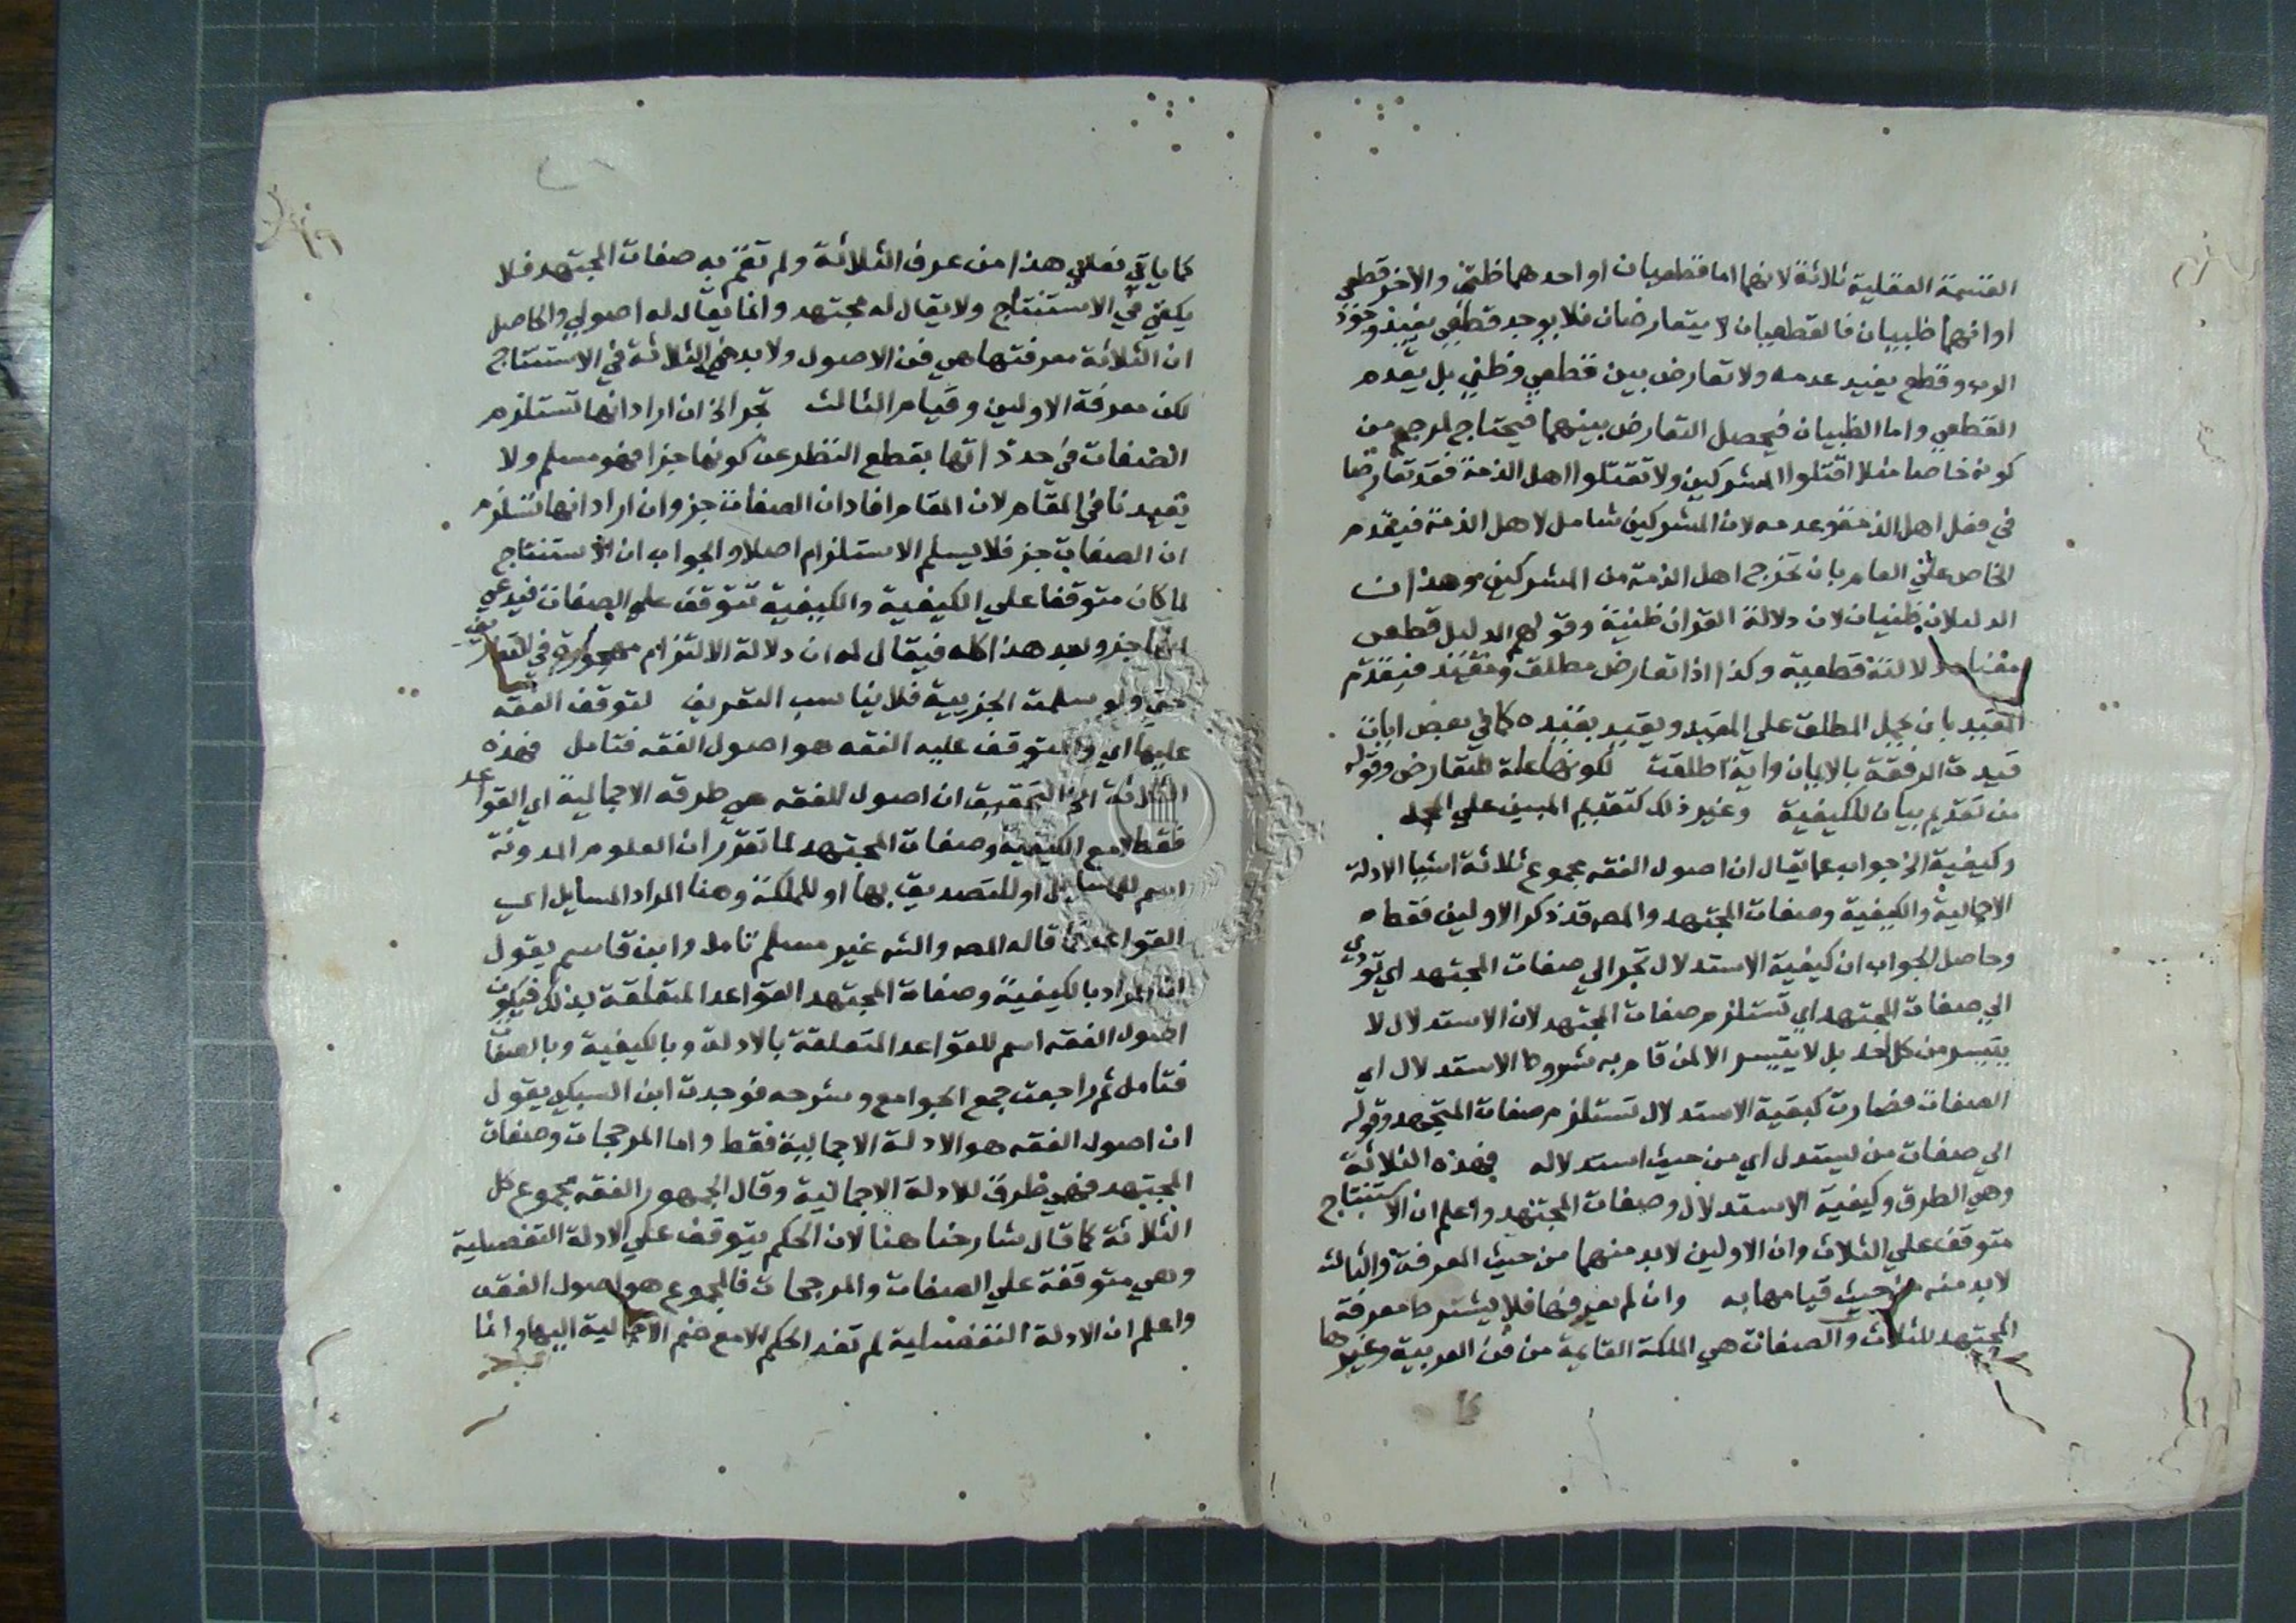 القسمة العقلية ثلاثة لانهما اما قطعيان او احدهما ظني والاخر قطعي
او انهما ظنيان فالقطعيان لا يتعارضان فلا يوجد قطعي يفيد وجود
الوب وقطع يفيد عدمه ولا تعارض بين قطعي وظني بل يقدم
القطعي واما الظنيان فيحصل التعارض بينهما فيحتاج لمرجح من
كونه خاصا مثلا اقتلوا المشركين ولا تقتلوا اهل الذمة فقد تعارضا
في قتل اهل الذمة وعدمه لان المشركين شامل لاهل الذمة فيقدم
الخاص على العام بان تخرج اهل الذمة من المشركين وهذان
الدليلان ظنيان لان دلالة القران ظنية وقولهم الدليل قطعي
معناه دلالته قطعية وكذا اذا تعارض مطلق ومقيد فيقدم
المقيد بان يحمل المطلق على المقيد ويقيد بقيده كما في بعض ايات
قيدت الرقبة بالايمان واية اطلقت لكونها علة للتعارض وقوله
من تقديم بيان للكيفية وغير ذلك كتقديم المبين على المجمل
وكيفية الخ جواب عما يقال ان اصول الفقه مجموع ثلاثة اشيا الادلة
الاجمالية والكيفية وصفات المجتهد والمص قد ذكر الاولين فقط
وحاصل الجواب ان كيفية الاستدلال تجر الي صفات المجتهد اي تودي
الي صفات المجتهد اي تستلزم صفات المجتهد لان الاستدلال لا
يتيسر من كل احد بل لا يتيسر الا لمن قام به شروط الاستدلال اي
الصفات فصارت كيفية الاستدلال تستلزم صفات المجتهد وقوله
الي صفات من يستدل اي من حيث استدلاله فهذه الثلاثة
وهي الطرق وكيفية الاستدلال وصفات المجتهد واعلم ان الاستنتاج
متوقف علي الثلاث وان الاولين لا بد منهما من حيث المعرفة والثالث
لا بد منه من حيث قيامها به وان لم يعرفها فلا يشترط معرفة
المجتهد للثلاث والصفات هي الملكة القايمة من فن العربية وغيرها
كما ياتي فعلي هذا من عرف الثلاثة ولم تقم به صفات المجتهد فلا
يكفي في الاستنتاج ولا يقال له مجتهد وانما يقال له اصولي والحاصل
ان الثلاثة معرفتها هي فن الاصول ولا بد من الثلاثة في الاستنتاج
لكن معرفة الاولين وقيام الثالث تجر الخ ان اراد انها تستلزم
الصفات في حد ذاتها بقطع النظر عن كونها جزا فهو مسلم ولا
يفيدنا في المقام لان المقام افاد ان الصفات جز وان اراد انها تستلزم
ان الصفات جز فلا يسلم الاستلزام اصلا والجواب ان الاستنتاج
لما كان متوقفا علي الكيفية والكيفية تتوقف علي الصفات فيدعي
انها جز وبعد هذا كله فيقال له ان دلالة الالتزام مهجورة في التعاريف
حتي ولو سلمت الجزيية فلا يناسب التعريف لتوقف الفقه
عليها اي والمتوقف عليه الفقه هو اصول الفقه فتامل فهذه
الثلاثة الخ التحقيق ان اصول الفقه هي طرقه الاجمالية اي القواعد
فقط لا مع الكيفية وصفات المجتهد لما تقرر ان العلوم المدونة
اسم للمسايل او للتصديق بها او للملكة وهنا المراد المسايل اي
القواعد فما قاله المص والشه غير مسلم تامل وابن قاسم يقول
ان المراد بالكيفية وصفات المجتهد القواعد المتعلقة بذلك فيكون
اصول الفقه اسم للقواعد المتعلقة بالادلة وبالكيفية وبالصفات
فتامل ثم راجعت جمع الجوامع وشرحه فوجدت ابن السبكي يقول
ان اصول الفقه هو الادلة الاجمالية فقط واما المرجحات وصفات
المجتهد فهي طرق للادلة الاجمالية وقال الجمهور الفقه مجموع كل
الثلاثة كما قال شارحنا هنا لان الحكم يتوقف علي الادلة التفصيلية
وهي متوقفة علي الصفات والمرجحات فالمجموع هو اصول الفقه
واعلم ان الادلة التفصيلية لم تفد الحكم الا مع ضم الاجمالية اليها وانما